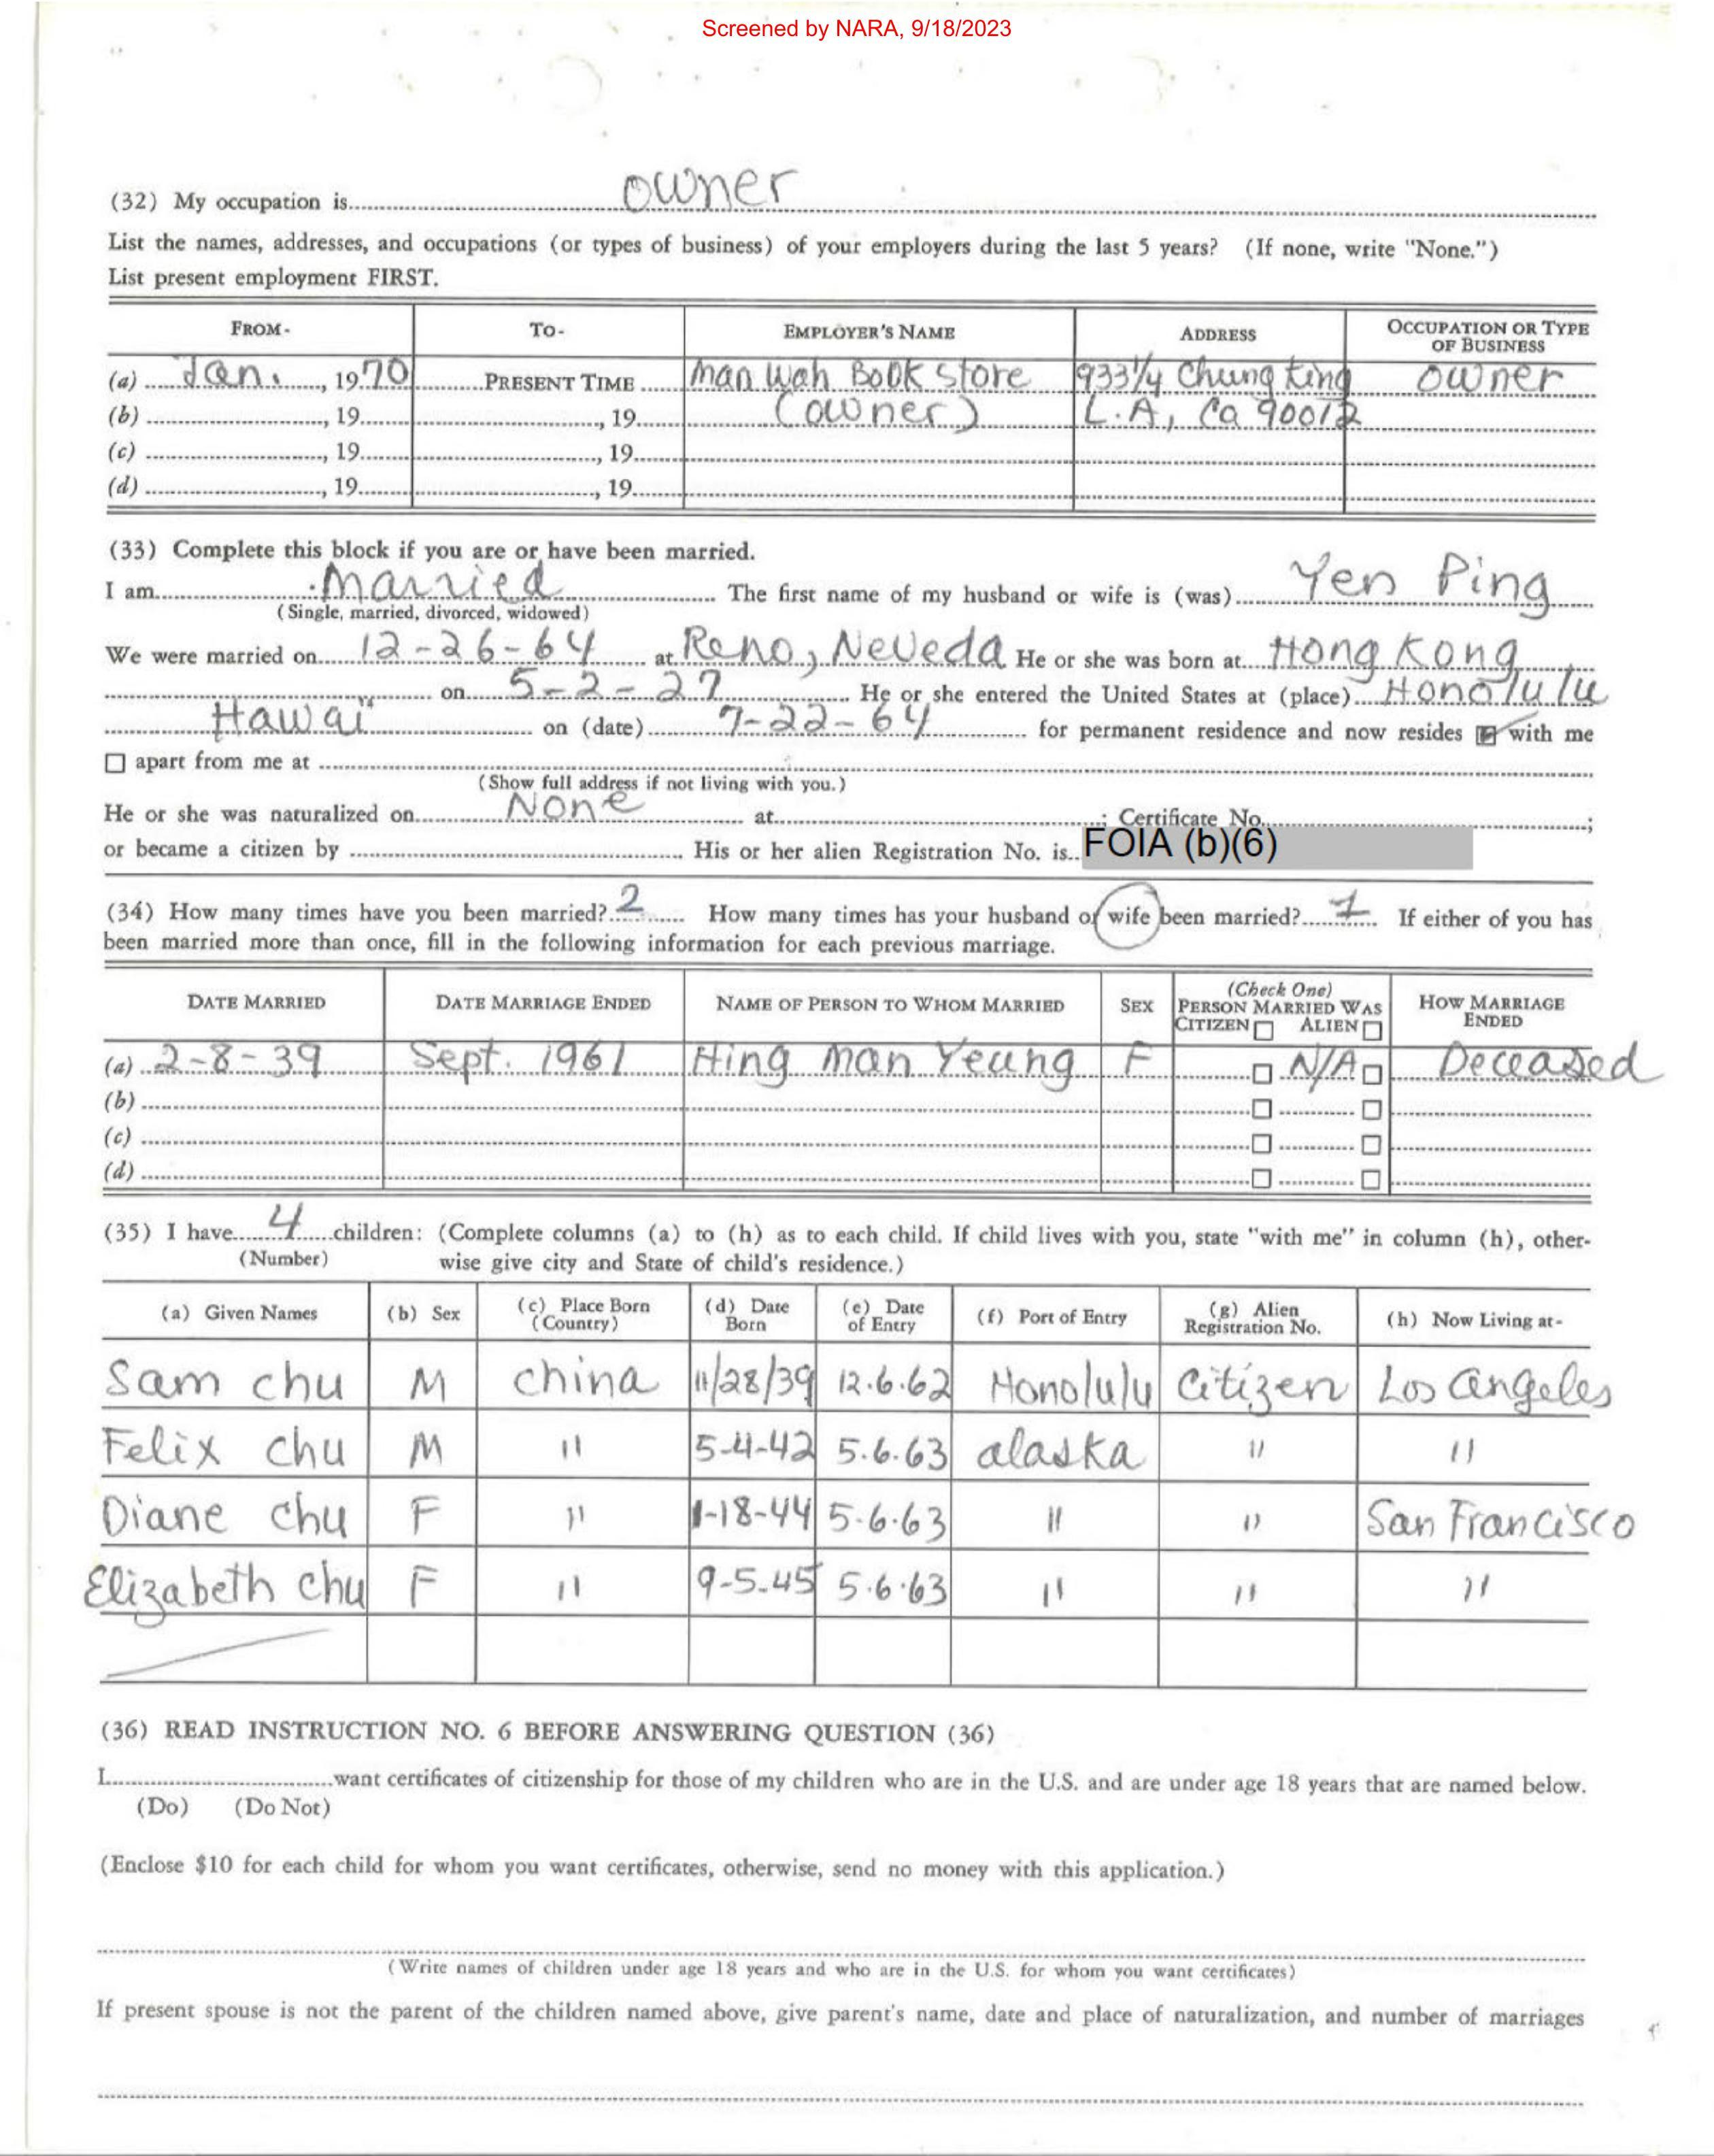 Screened by NARA, 9/18/2023
(32) My occupation is owner
List the names, addresses, and occupations (or types of business) of your employers during the last 5 years? (If none, write "None.")
List present employment FIRST.
FROM- TO- EMPLOYER'S NAME ADDRESS OCCUPATION OR TYPE OF BUSINESS
(a) Jan., 1970 PRESENT TIME Man Wah Book Store 933¼ Chung King owner
(b) , 19 , 19 (owner) L.A, Ca 90012
(c) , 19 , 19
(d) , 19 , 19
(33) Complete this block if you are or have been married.
I am married The first name of my husband or wife is (was) Yen Ping
(Single, married, divorced, widowed)
We were married on 12-26-64 at Reno, Neveda He or she was born at Hong Kong
on 5-2-27 He or she entered the United States at (place) Honolulu
Hawaii on (date) 7-22-64 for permanent residence and now resides with me
apart from me at
(Show full address if not living with you.)
He or she was naturalized on None at ; Certificate No. ;
or became a citizen by His or her alien Registration No. is FOIA (b)(6)
(34) How many times have you been married? 2 How many times has your husband or wife been married? 1 If either of you has
been married more than once, fill in the following information for each previous marriage.
DATE MARRIED DATE MARRIAGE ENDED NAME OF PERSON TO WHOM MARRIED SEX (Check One) PERSON MARRIED WAS CITIZEN ALIEN HOW MARRIAGE ENDED
(a) 2-8-39 Sept. 1961 Hing Man Yeung F N/A Deceased
(b)
(c)
(d)
(35) I have 4 children: (Complete columns (a) to (h) as to each child. If child lives with you, state "with me" in column (h), other-
(Number) wise give city and State of child's residence.)
(a) Given Names (b) Sex (c) Place Born (Country) (d) Date Born (e) Date of Entry (f) Port of Entry (g) Alien Registration No. (h) Now Living at-
Sam chu M china 11/28/39 12.6.62 Honolulu Citizen Los Angeles
Felix chu M " 5-4-42 5.6.63 alaska " "
Diane chu F " 1-18-44 5.6.63 " " San Francisco
Elizabeth chu F " 9-5-45 5.6.63 " " "
(36) READ INSTRUCTION NO. 6 BEFORE ANSWERING QUESTION (36)
I want certificates of citizenship for those of my children who are in the U.S. and are under age 18 years that are named below.
(Do) (Do Not)
(Enclose $10 for each child for whom you want certificates, otherwise, send no money with this application.)
(Write names of children under age 18 years and who are in the U.S. for whom you want certificates)
If present spouse is not the parent of the children named above, give parent's name, date and place of naturalization, and number of marriages